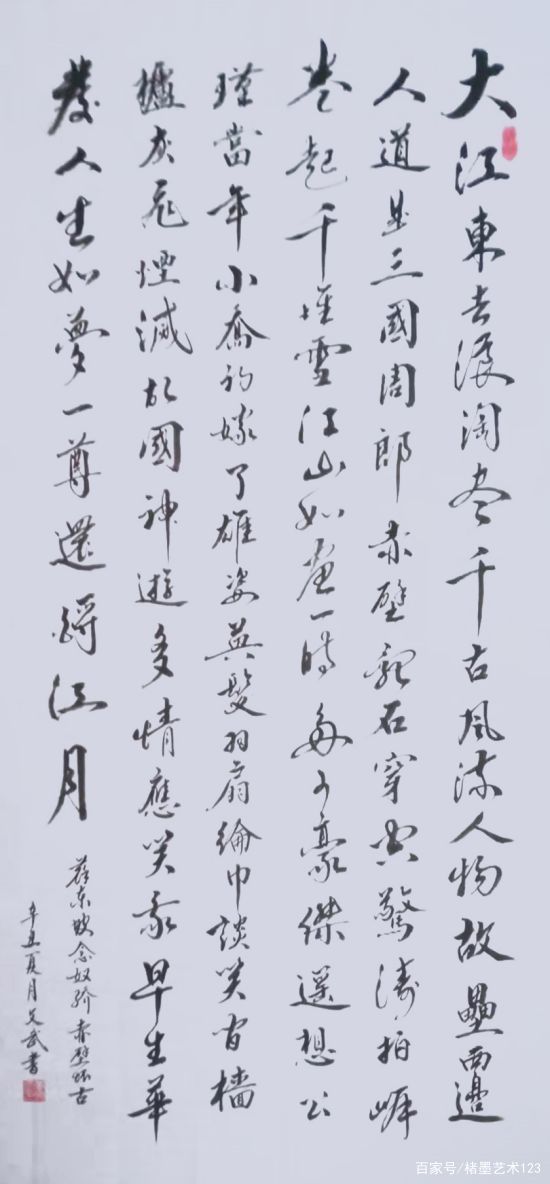 大江東去浪淘尽千古風流人物故壘西邊
人道是三國周郎赤壁亂石穿空驚濤拍岸
卷起千堆雪江山如畫一時多少豪傑遥想公
瑾當年小喬初嫁了雄姿英發羽扇綸巾談笑間檣
櫓灰飛煙滅故國神遊多情應笑我早生華
髮人生如夢一尊還酹江月
蘇東坡念奴嬌赤壁懷古
辛丑夏月武書
百家号/楮墨艺术123